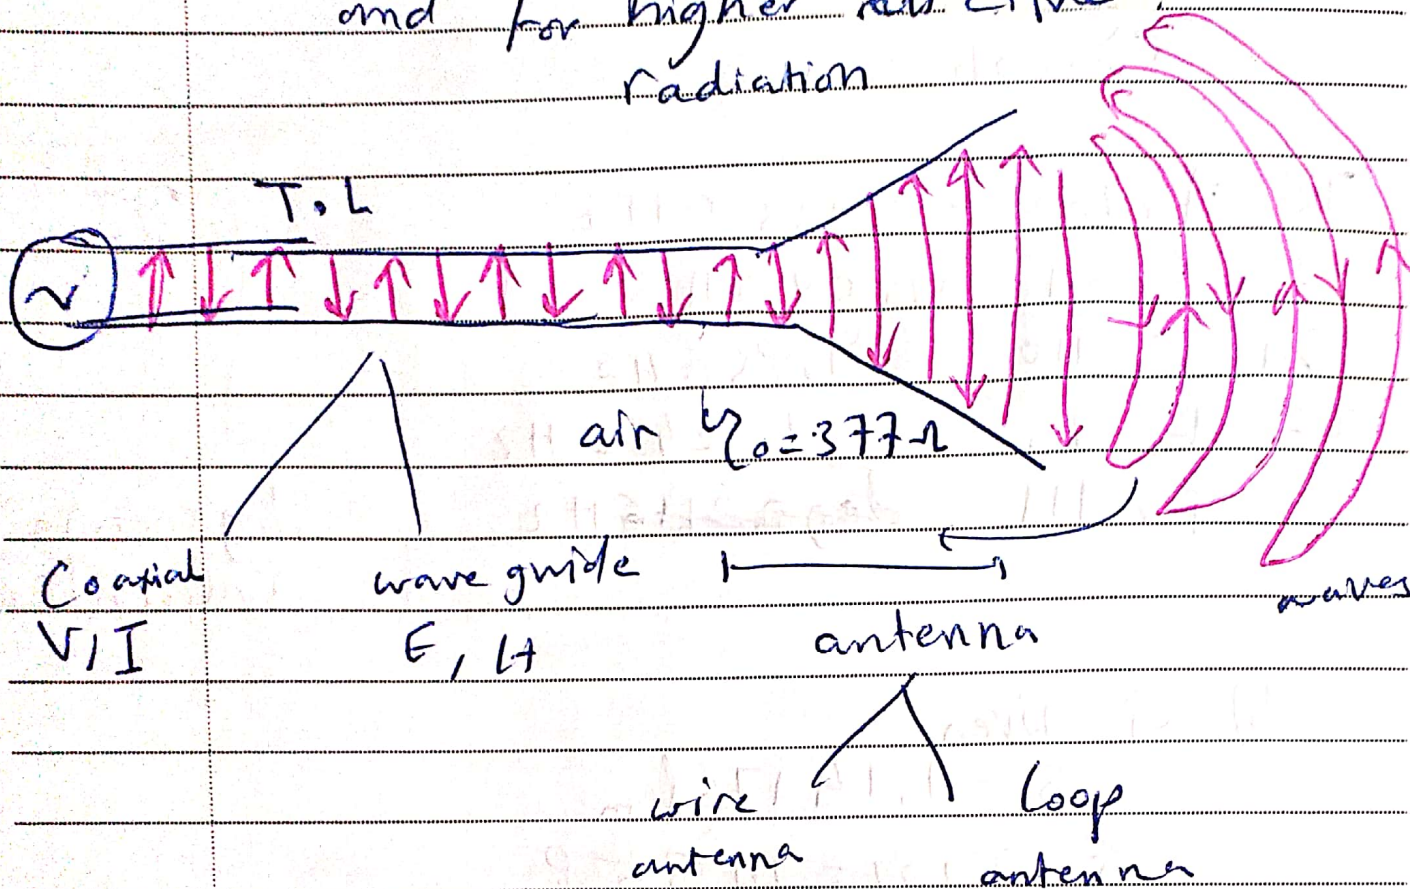 and for higher
radiation
T.L
~
air η₀=377Ω
Coaxial
V/I
wave guide
E, H
antenna
waves
wire
antenna
loop
antenna